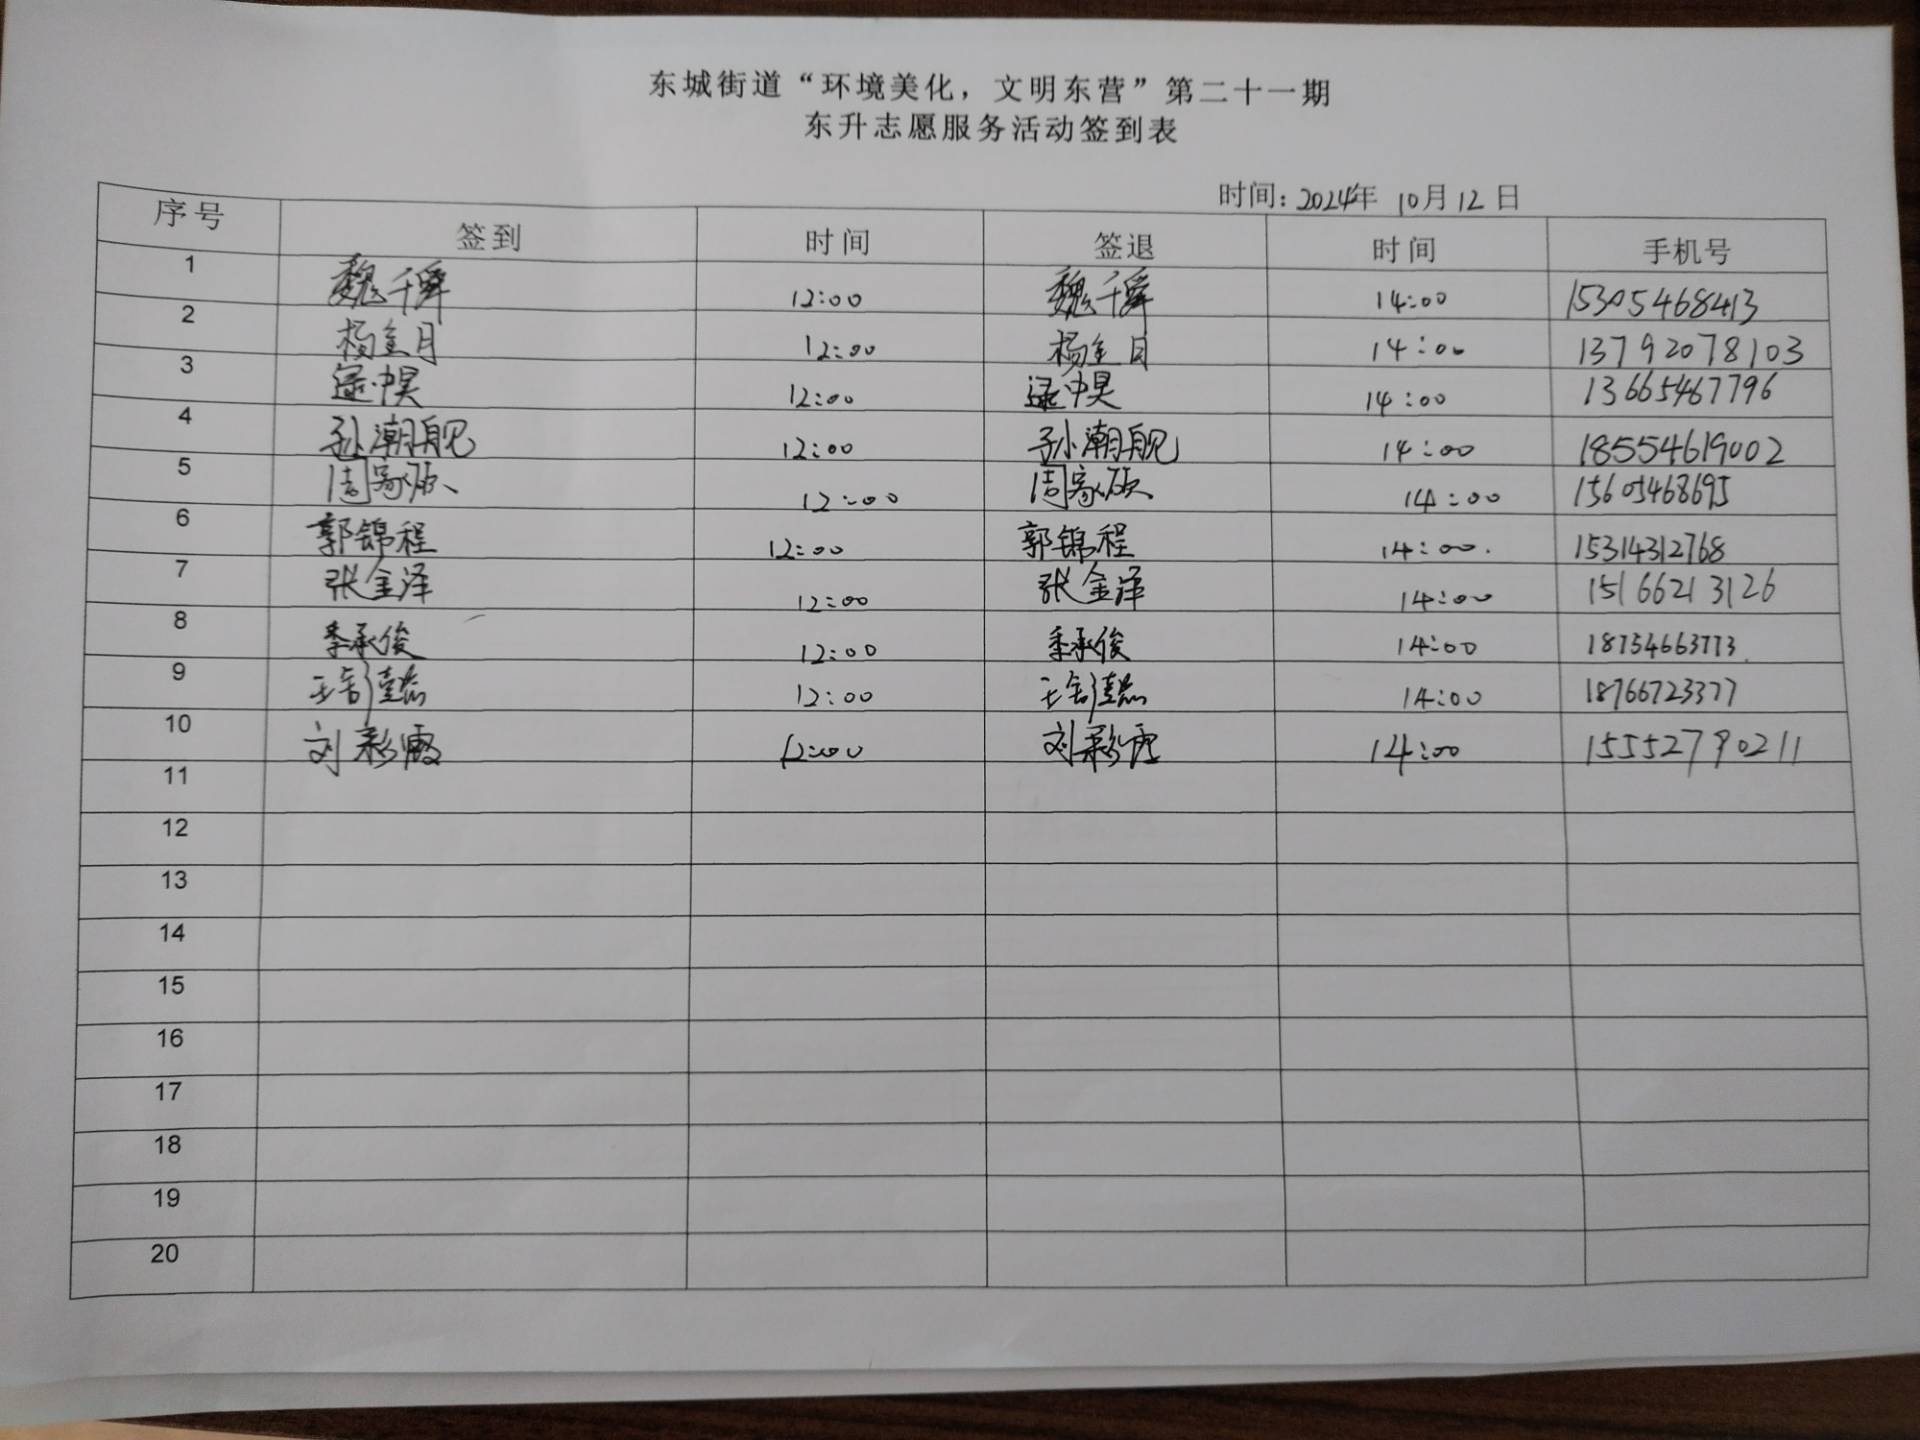 东城街道“环境美化，文明东营”第二十一期
东升志愿服务活动签到表
时间：2024年 10月12日
序号 签到 时间 签退 时间 手机号
1 魏千舜 12:00 魏千舜 14:00 15305468413
2 杨金月 12:00 杨金月 14:00 13792078103
3 逯中昊 12:00 逯中昊 14:00 13665467796
4 孙潮舰 12:00 孙潮舰 14:00 18554619002
5 周家硕 12:00 周家硕 14:00 15605468695
6 郭锦程 12:00 郭锦程 14:00. 15314312768
7 张金泽 12:00 张金泽 14:00 15166213126
8 季承俊 12:00 季承俊 14:00 18754663773.
9 王 12:00 王 14:00 18766723377
10 刘彩霞 12:00 刘彩霞 14:00 15552790211
11
12
13
14
15
16
17
18
19
20